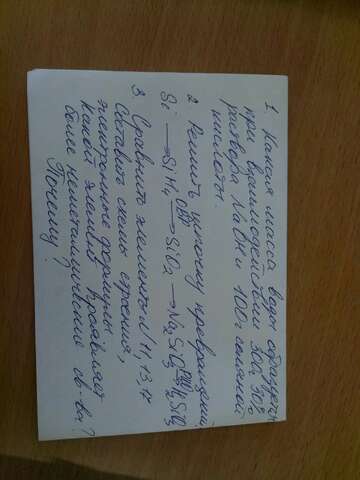 1. Какая масса воды образуется
при взаимодействии 30г 30%
раствора NaOH и 100г соляной
кислоты.
2 Решить цепочку превращений
ОВР РИО
Si → SiH4 → SiO2 → Na2SiO3 → H2SiO3
3. Сравнить элементы N 11, 13, 17
Составить схемы строения,
электронные формулы
Какой элемент проявляет
более неметаллические св-ва?
Почему?